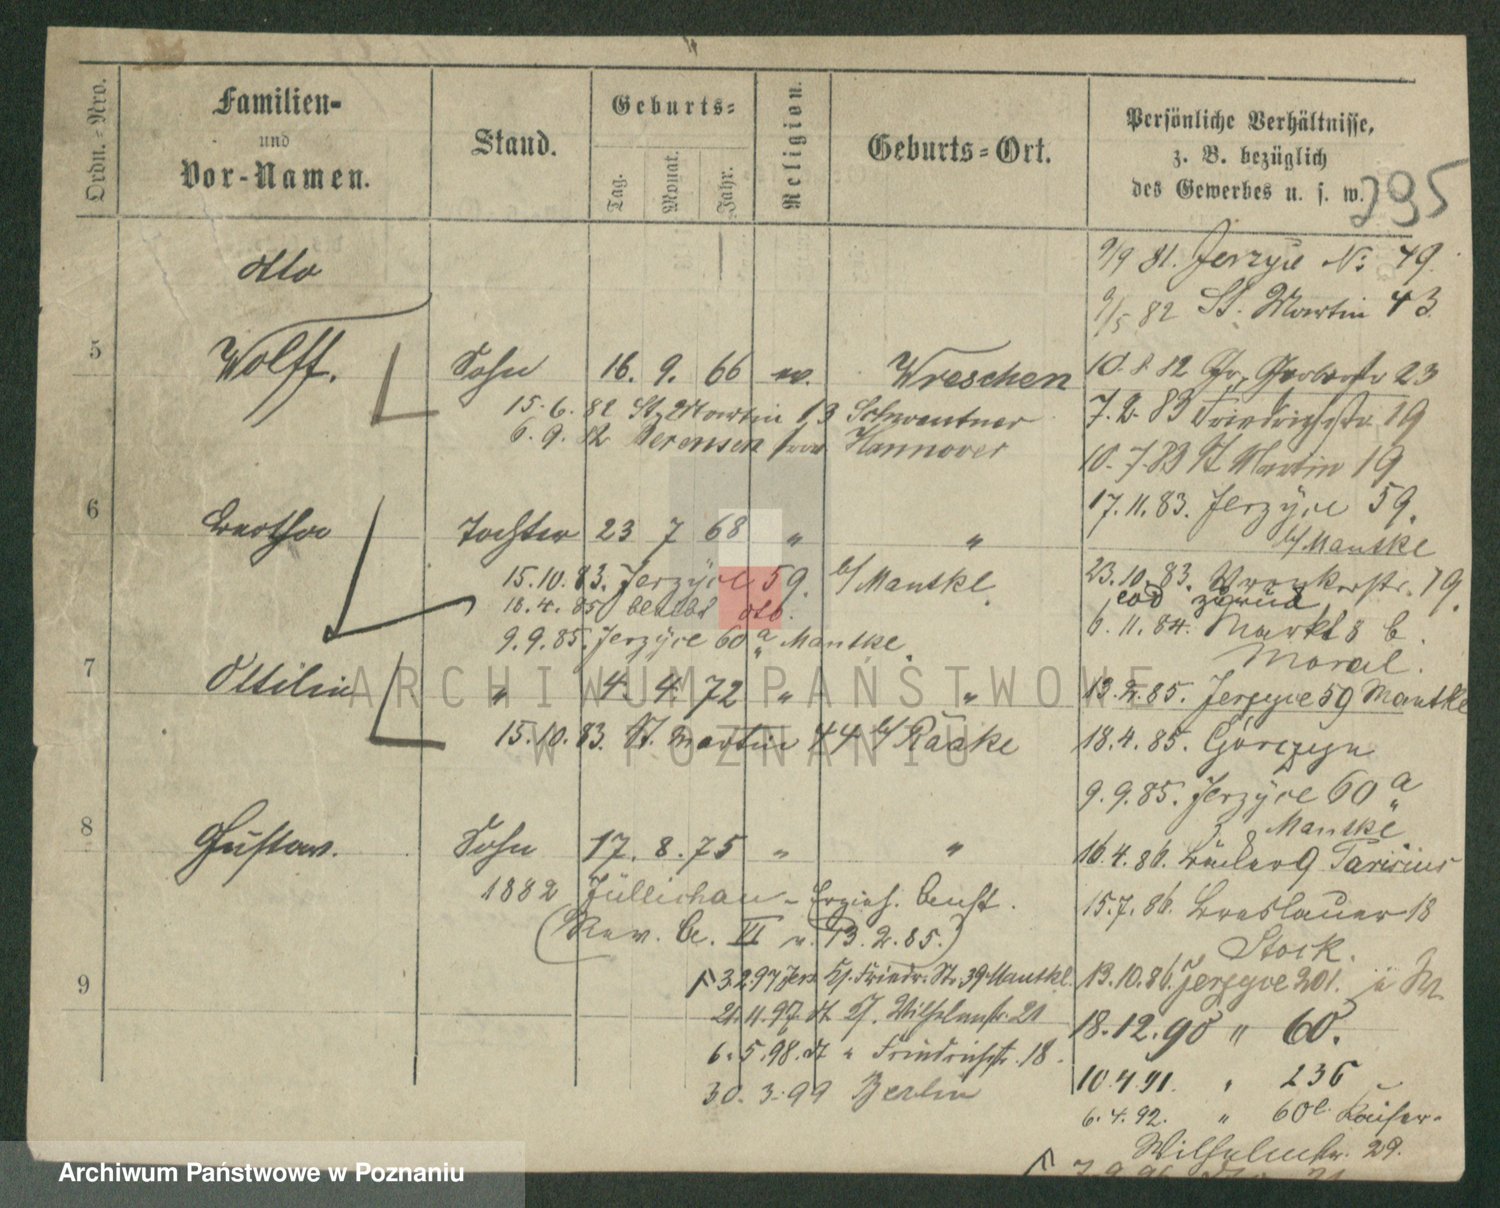 Ordn.-Nro.
Familien-
und
Vor-Namen.
Stand.
Geburts-
Tag.
Monat.
Jahr.
Religion.
Geburts-Ort.
Persönliche Verhältnisse,
z. B. bezüglich
des Gewerbes u. s. w.
295
Otto
9/9 81. Jerzyce No 79.
9/5 82 St. Martin 43
5 Wolff. Sohn 16. 9. 66 ev. Wreschen
10. 8. 82 Gr. Gerberstr 23
15. 6. 82 St. Martin 13 Schwantner
7. 2. 83 Friedrichstr. 19
6. 9. 82 Hannover
10. 7. 83 St Martin 19
17. 11. 83. Jerzyce 59.
b/ Mantke
6 Bertha Tochter 23 7 68 " "
15. 10. 83. Jerzyce 59. b/ Mantke.
23. 10. 83. Wronkerstr. 79.
eod zurück
18. 4. 85
6. 11. 84. Markt 8 b.
Moral.
9. 9. 85. Jerzyce 60 a Mantke.
7 Ottilie " 4. 4. 72 " "
13. 2. 85. Jerzyce 59 Mantke
15. 10. 83. St. Martin 44 b/ Raake
18. 4. 85. Górczyn
9. 9. 85. Jerzyce 60 a
Mantke
8 Gustav. Sohn 17. 8. 75 " "
16. 4. 86. 9
1882 Züllichau - Erzieh. Anst.
15. 7. 86. Breslauer 18
Stock.
(Rev. A. VI v. 13. 2. 85.)
9
3 2 97 Jers Kl. Friedr. Str. 39 Mantke.
13. 10. 86. Jerzyce 201.
21. 11. 97 Wilhelmstr. 21
18. 12. 90 " 60.
6. 5. 98. " Friedrichstr. 18.
10. 4 91. " 236
30. 3. 99 Berlin
6. 4. 92. " 60 Kaiser-
Wilhelmstr. 29.
ARCHIWUM PAŃSTWOWE
W POZNANIU
Archiwum Państwowe w Poznaniu